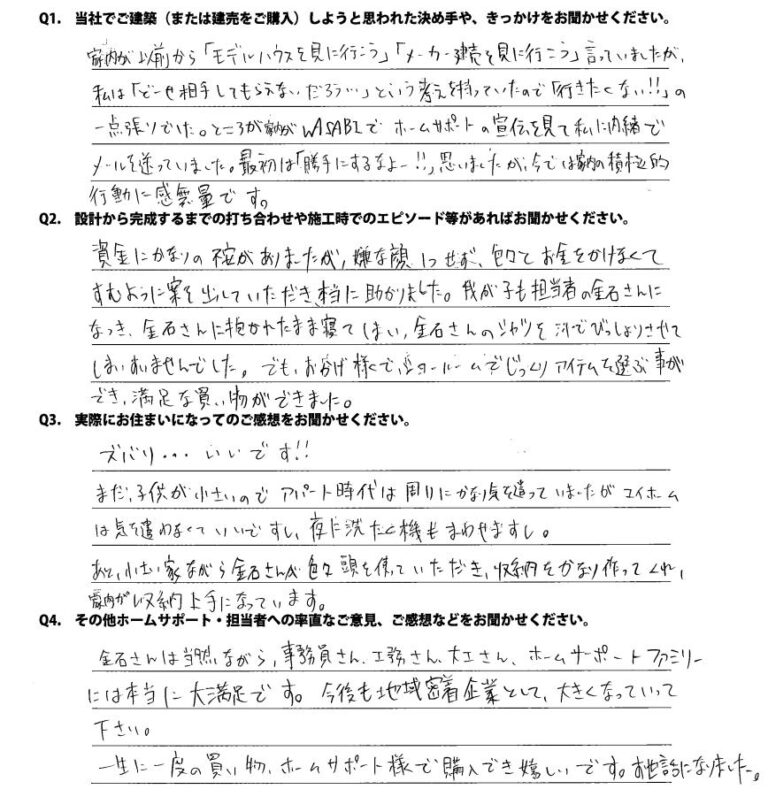 Q1. 当社でご建築（または建売をご購入）しようと思われた決め手や、きっかけをお聞かせください。
家内が以前から「モデルハウスを見に行こう」「メーカー建売を見に行こう」言っていましたが、
私は「どーせ相手してもらえないだろう…」という考えを持っていたので「行きたくない!!」の
一点張りでした。ところが家内がWASABIでホームサポートの宣伝を見て私に内緒で
メールを送っていました。最初は「勝手にするなよー!!」思いましたが、今では家内の積極的
行動に感無量です。
Q2. 設計から完成するまでの打ち合わせや施工時でのエピソード等があればお聞かせください。
資金にかなりの不安がありましたが、嫌な顔1つせず、色々とお金をかけなくて
すむように案を出していただき、本当に助かりました。我が子も担当者の金石さんに
なつき、金石さんに抱かれたまま寝てしまい、金石さんのシャツを汗でびっしょりさせて
しまいすいませんでした。でも、おかげ様でショールームでじっくりアイテムを選ぶ事が
でき、満足な買い物ができました。
Q3. 実際にお住まいになってのご感想をお聞かせください。
ズバリ…いいです!!
まだ、子供が小さいのでアパート時代は周りにかなり気を遣っていましたがマイホーム
は気を遣わなくていいですし、夜に洗たく機もまわせますし。
あと、小さい家ながら金石さんが色々頭を使っていただき、収納をかなり作ってくれ、
家内が収納上手になっています。
Q4. その他ホームサポート・担当者への率直なご意見、ご感想などをお聞かせください。
金石さんは当然ながら、事務員さん、工務さん、大工さん、ホームサポートファミリー
には本当に大満足です。今後も地域密着企業として、大きくなっていって
下さい。
一生に一度の買い物、ホームサポート様で購入でき嬉しいです。お世話になりました。